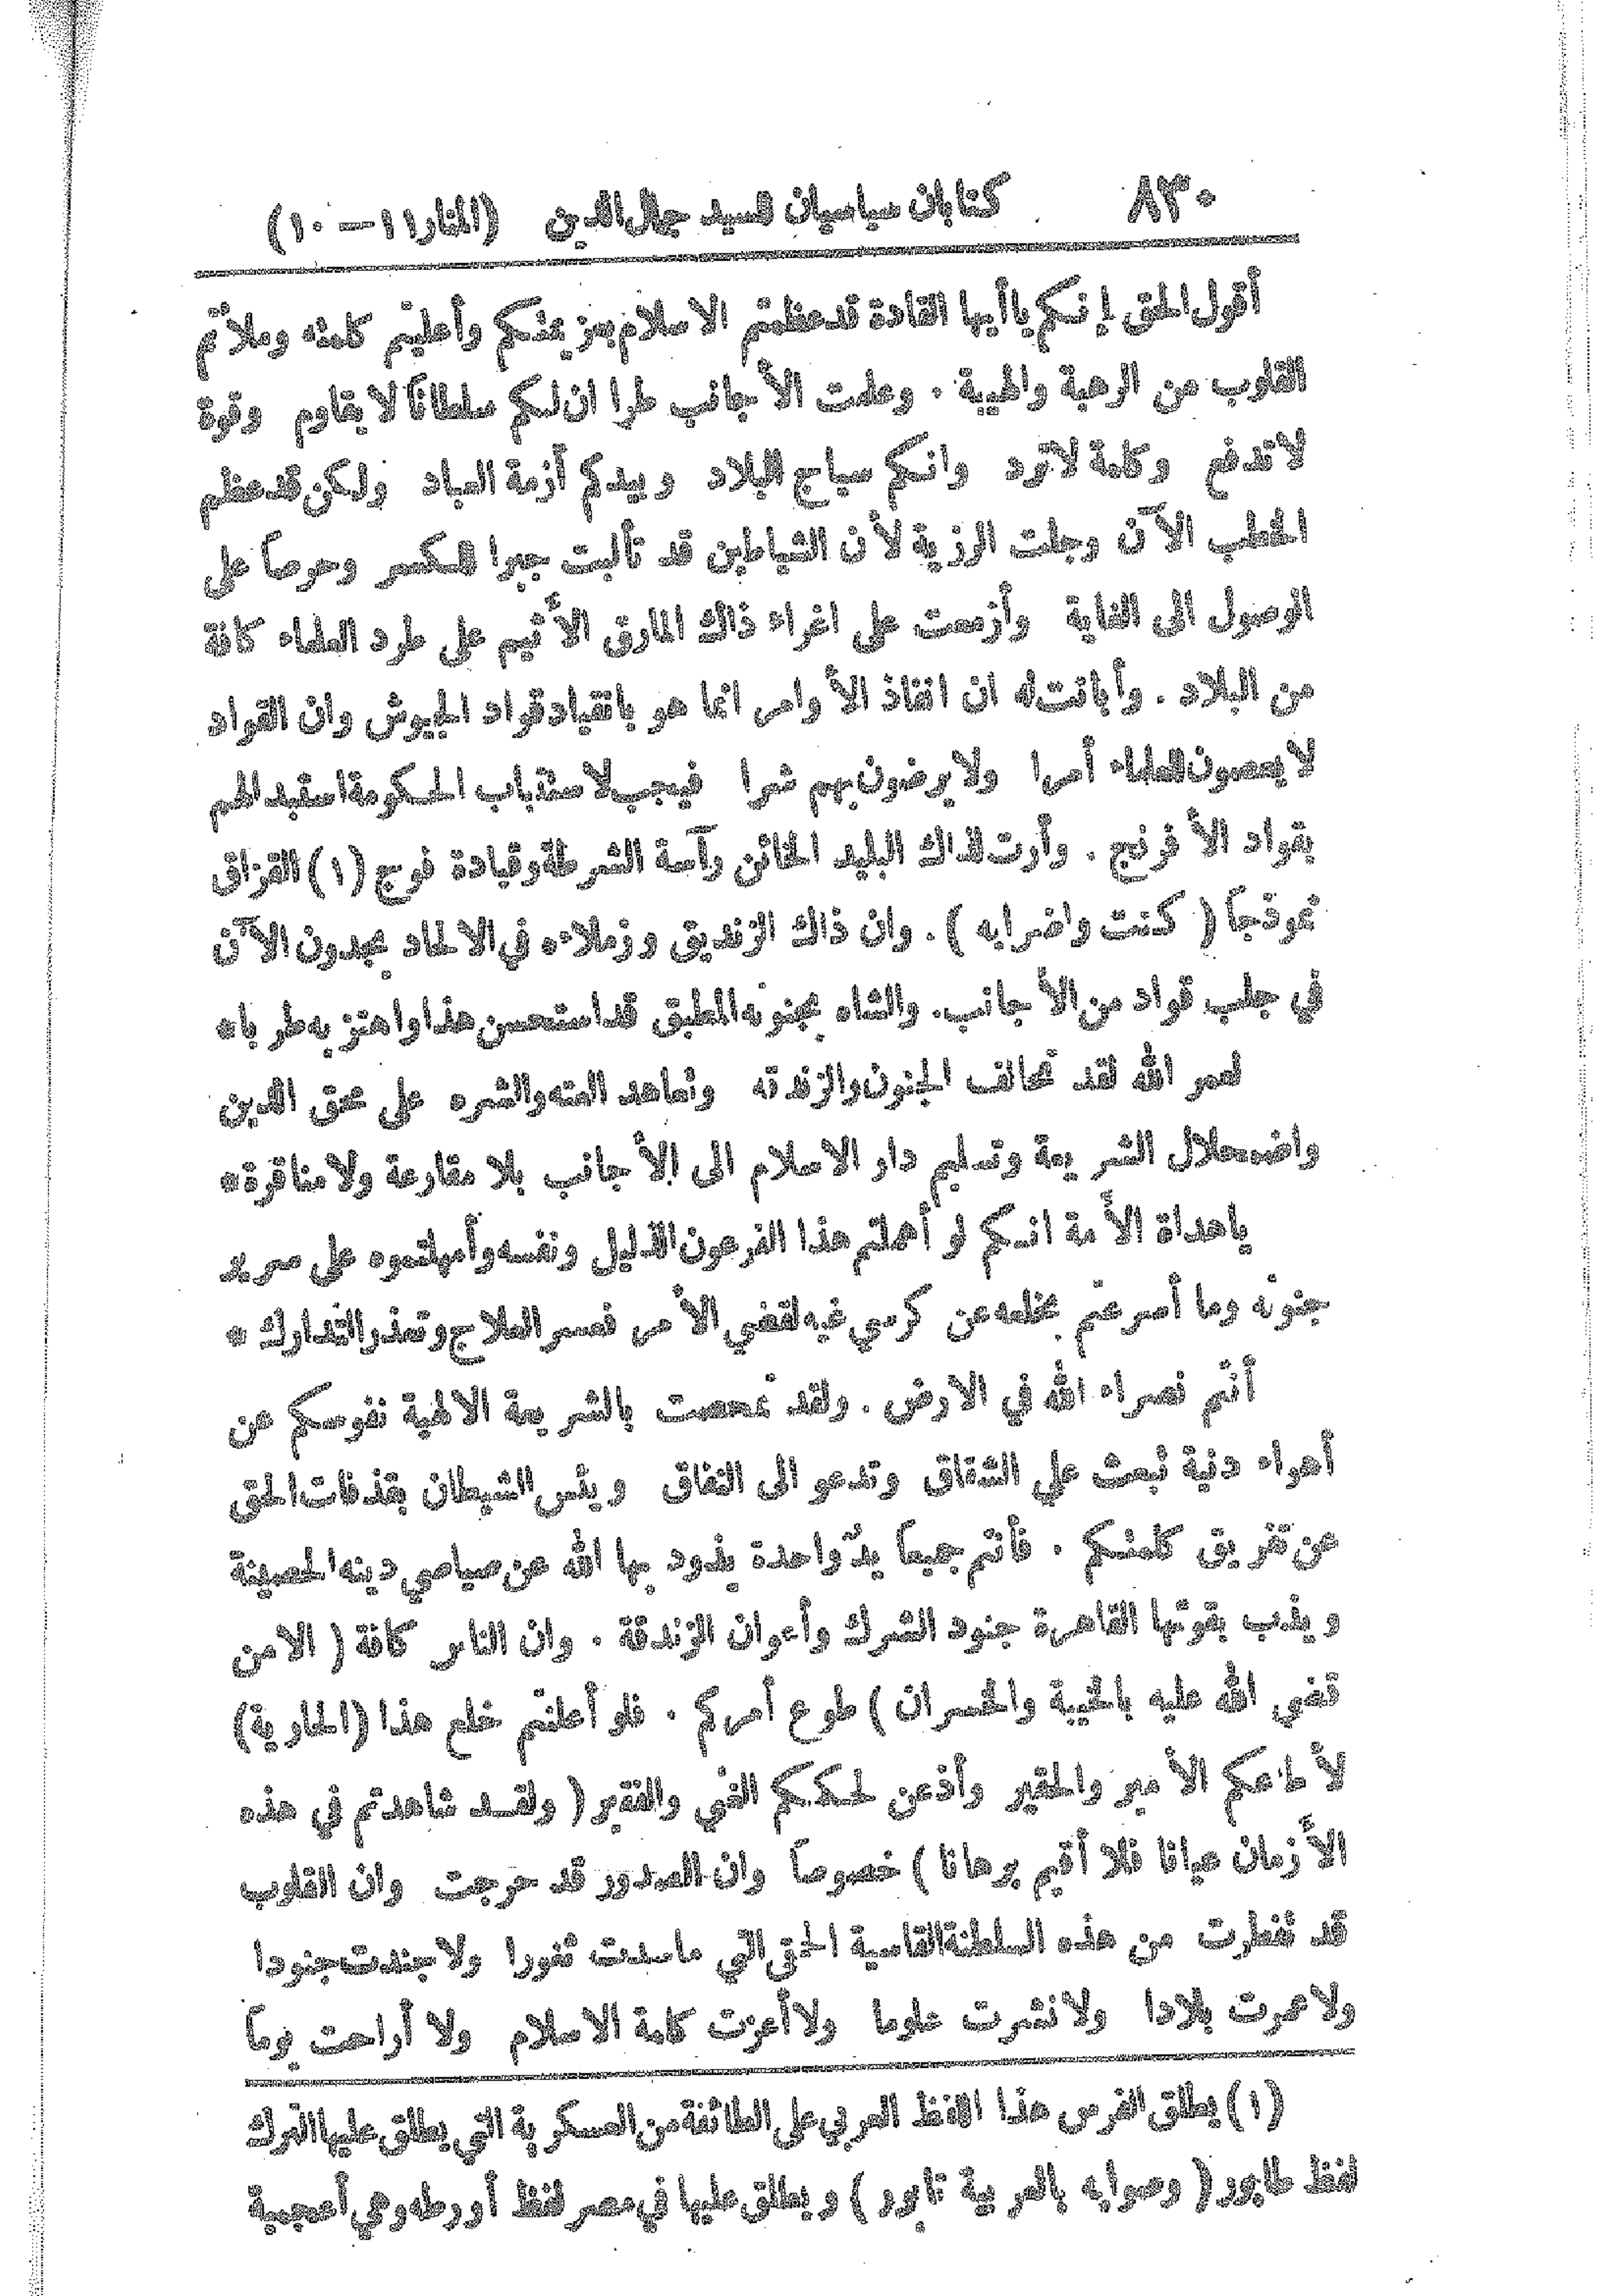 ٨٣٠ كتابان سياسيان للسيد جمال الدين (المنار ١١ — ١٠)
أقول الحق إنكم يا أيها القادة قد عظمتم الاسلام بعزيمتكم وأعليتم كلمته وملأتم
القلوب من الرهبة والهيبة . وعلمت الأجانب طرا ان لكم سلطاناً لا يقاوم وقوة
لا تدفع وكلمة لا ترد وانكم سياج البلاد وبيدكم أزمة العباد ولكن قد عظم
الخطب الآن وجلت الرزية لأن الشياطين قد تألبت جبرا للكسر وحرصاً على
الوصول الى الغاية وأزمعت على اغراء ذاك المارق الأثيم على طرد العلماء كافة
من البلاد . وأبانت له ان انفاذ الأوامر انما هو بانقياد قواد الجيوش وان القواد
لا يعصون للعلماء أمرا ولا يرضون بهم شرا فيجب لاستتباب الحكومة استبدالهم
بقواد الأفرنج . وأرت لذاك البليد الخائن رآسة الشرطة وقيادة فوج (١) القزاق
نموذجاً ( كنت واضرابه ) . وان ذاك الزنديق وزملاءه في الالحاد يجدون الآن
في جلب قواد من الأجانب . والشاه بجنونه المطبق قد استحسن هذا واهتز به طربا *
لعمر الله لقد تحالف الجنون والزندقه وتعاهد العته والشره على محق الدين
واضمحلال الشريعة وتسليم دار الاسلام الى الأجانب بلا مقارعة ولا مناقرة *
يا هداة الأمة انكم لو أهملتم هذا الفرعون الذليل ونفسه وأمهلتموه على سرير
جنونه وما أسرعتم بخلعه عن كرسي غيه لقضي الأمر فعسر العلاج وتعذر التدارك *
أنتم نصراء الله في الارض . ولقد تمحصت بالشريعة الالهية نفوسكم عن
أهواء دنية تبعث على الشقاق وتدعو الى النفاق ويئس الشيطان بقذفات الحق
عن تفريق كلمتكم . فأنتم جميعاً يدٌ واحدة يذود بها الله عن صياصي دينه الحصينة
ويذب بقوتها القاهرة جنود الشرك وأعوان الزندقة . وان الناس كافة ( الا من
قضي الله عليه بالخيبة والخسران ) طوع أمركم . فلو أعلنتم خلع هذا (الحارية)
لأطاعكم الأمير والحقير وأذعن لحكمكم الغني والفقير ( ولقد شاهدتم في هذه
الأزمان عيانا فلا أقيم برهانا ) خصوصاً وان الصدور قد حرجت وان القلوب
قد تفطرت من هذه السلطنة القاسية الحمقى التي ما سدت ثغورا ولا جندت جنودا
ولا عمرت بلادا ولا نشرت علوما ولا أعزت كلمة الاسلام ولا أراحت يوماً
(١) يطلق الفرس هذا اللفظ العربي على الطائفة من العسكرية التي يطلق عليها الترك
لفظ طابور ( وصوابه بالعربية تابور ) ويطلق عليها في مصر لفظ أورطه وهي أعجمية